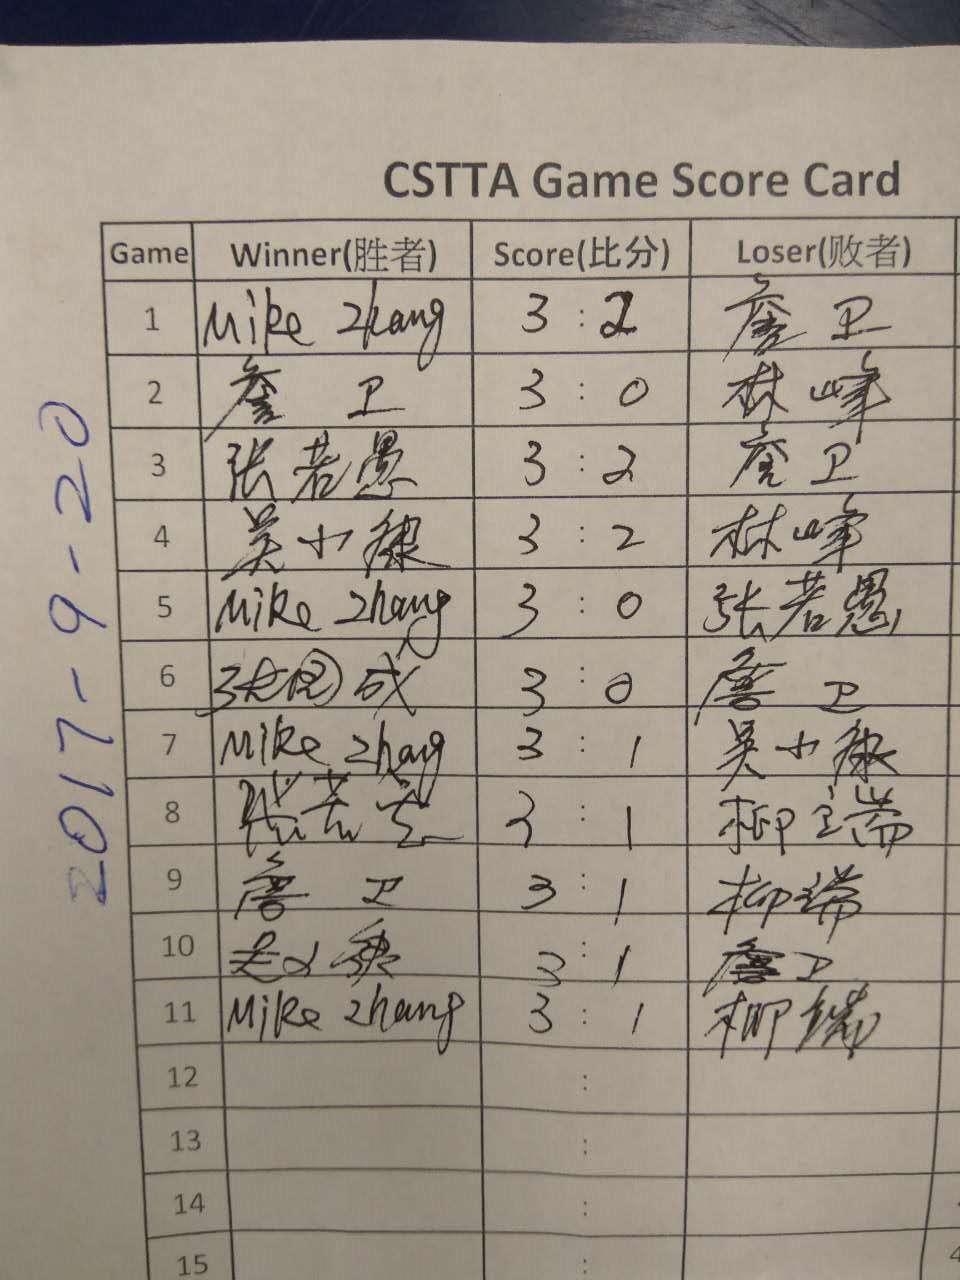 CSTTA Game Score Card
Game Winner(胜者) Score(比分) Loser(败者)
1 Mike Zhang 3 : 2 詹卫
2 詹卫 3 : 0 林峰
3 张若愚 3 : 2 詹卫
4 吴小 3 : 2 林峰
5 Mike Zhang 3 : 0 张若愚
6 成 3 : 0 詹卫
7 Mike Zhang 3 : 1 吴小
8 张若 3 : 1 柳端
9 詹卫 3 : 1 柳端
10 3 : 1 詹卫
11 Mike Zhang 3 : 1 柳端
12 :
13 :
14 :
15 :
2017-9-20